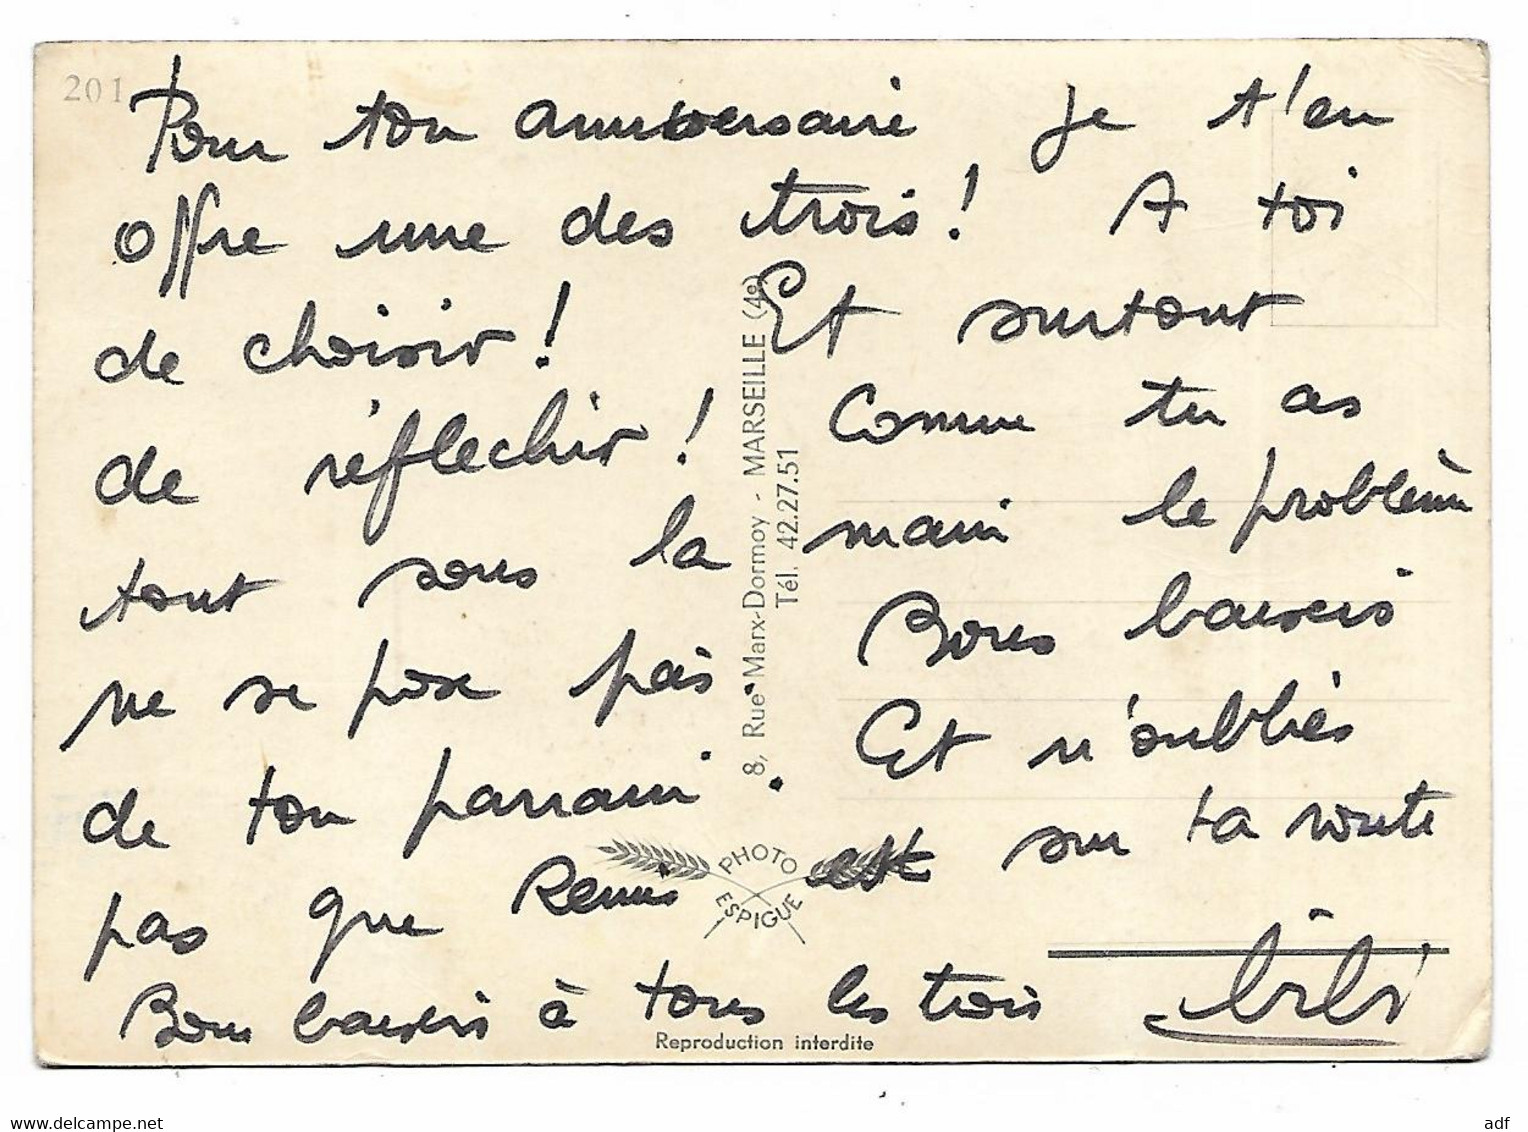 201
Pour ton anniversaire je t'en
offre une des trois! A toi
de choisir! Et surtout
de réflechir! Comme tu as
tout sous la main le problème
ne se pose pas. Bons baisers
de ton parrain. Et n'oublies
pas que Remis est sur ta route
Bons baisers à tous les trois
8, Rue Marx-Dormoy - MARSEILLE (4e)
Tél. 42.27.51
PHOTO
ESPIGUE
Reproduction interdite
www.delcampe.net
adf